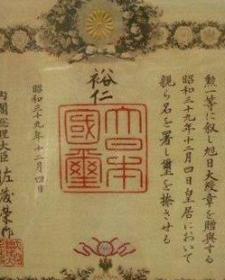 勲一等に叙し旭日大綬章を贈與する
昭和三十九年十二月四日皇居において
親ら名を署し璽を捺させる
裕仁
大日本國璽
昭和三十九年十二月四日
内閣総理大臣 佐藤榮作